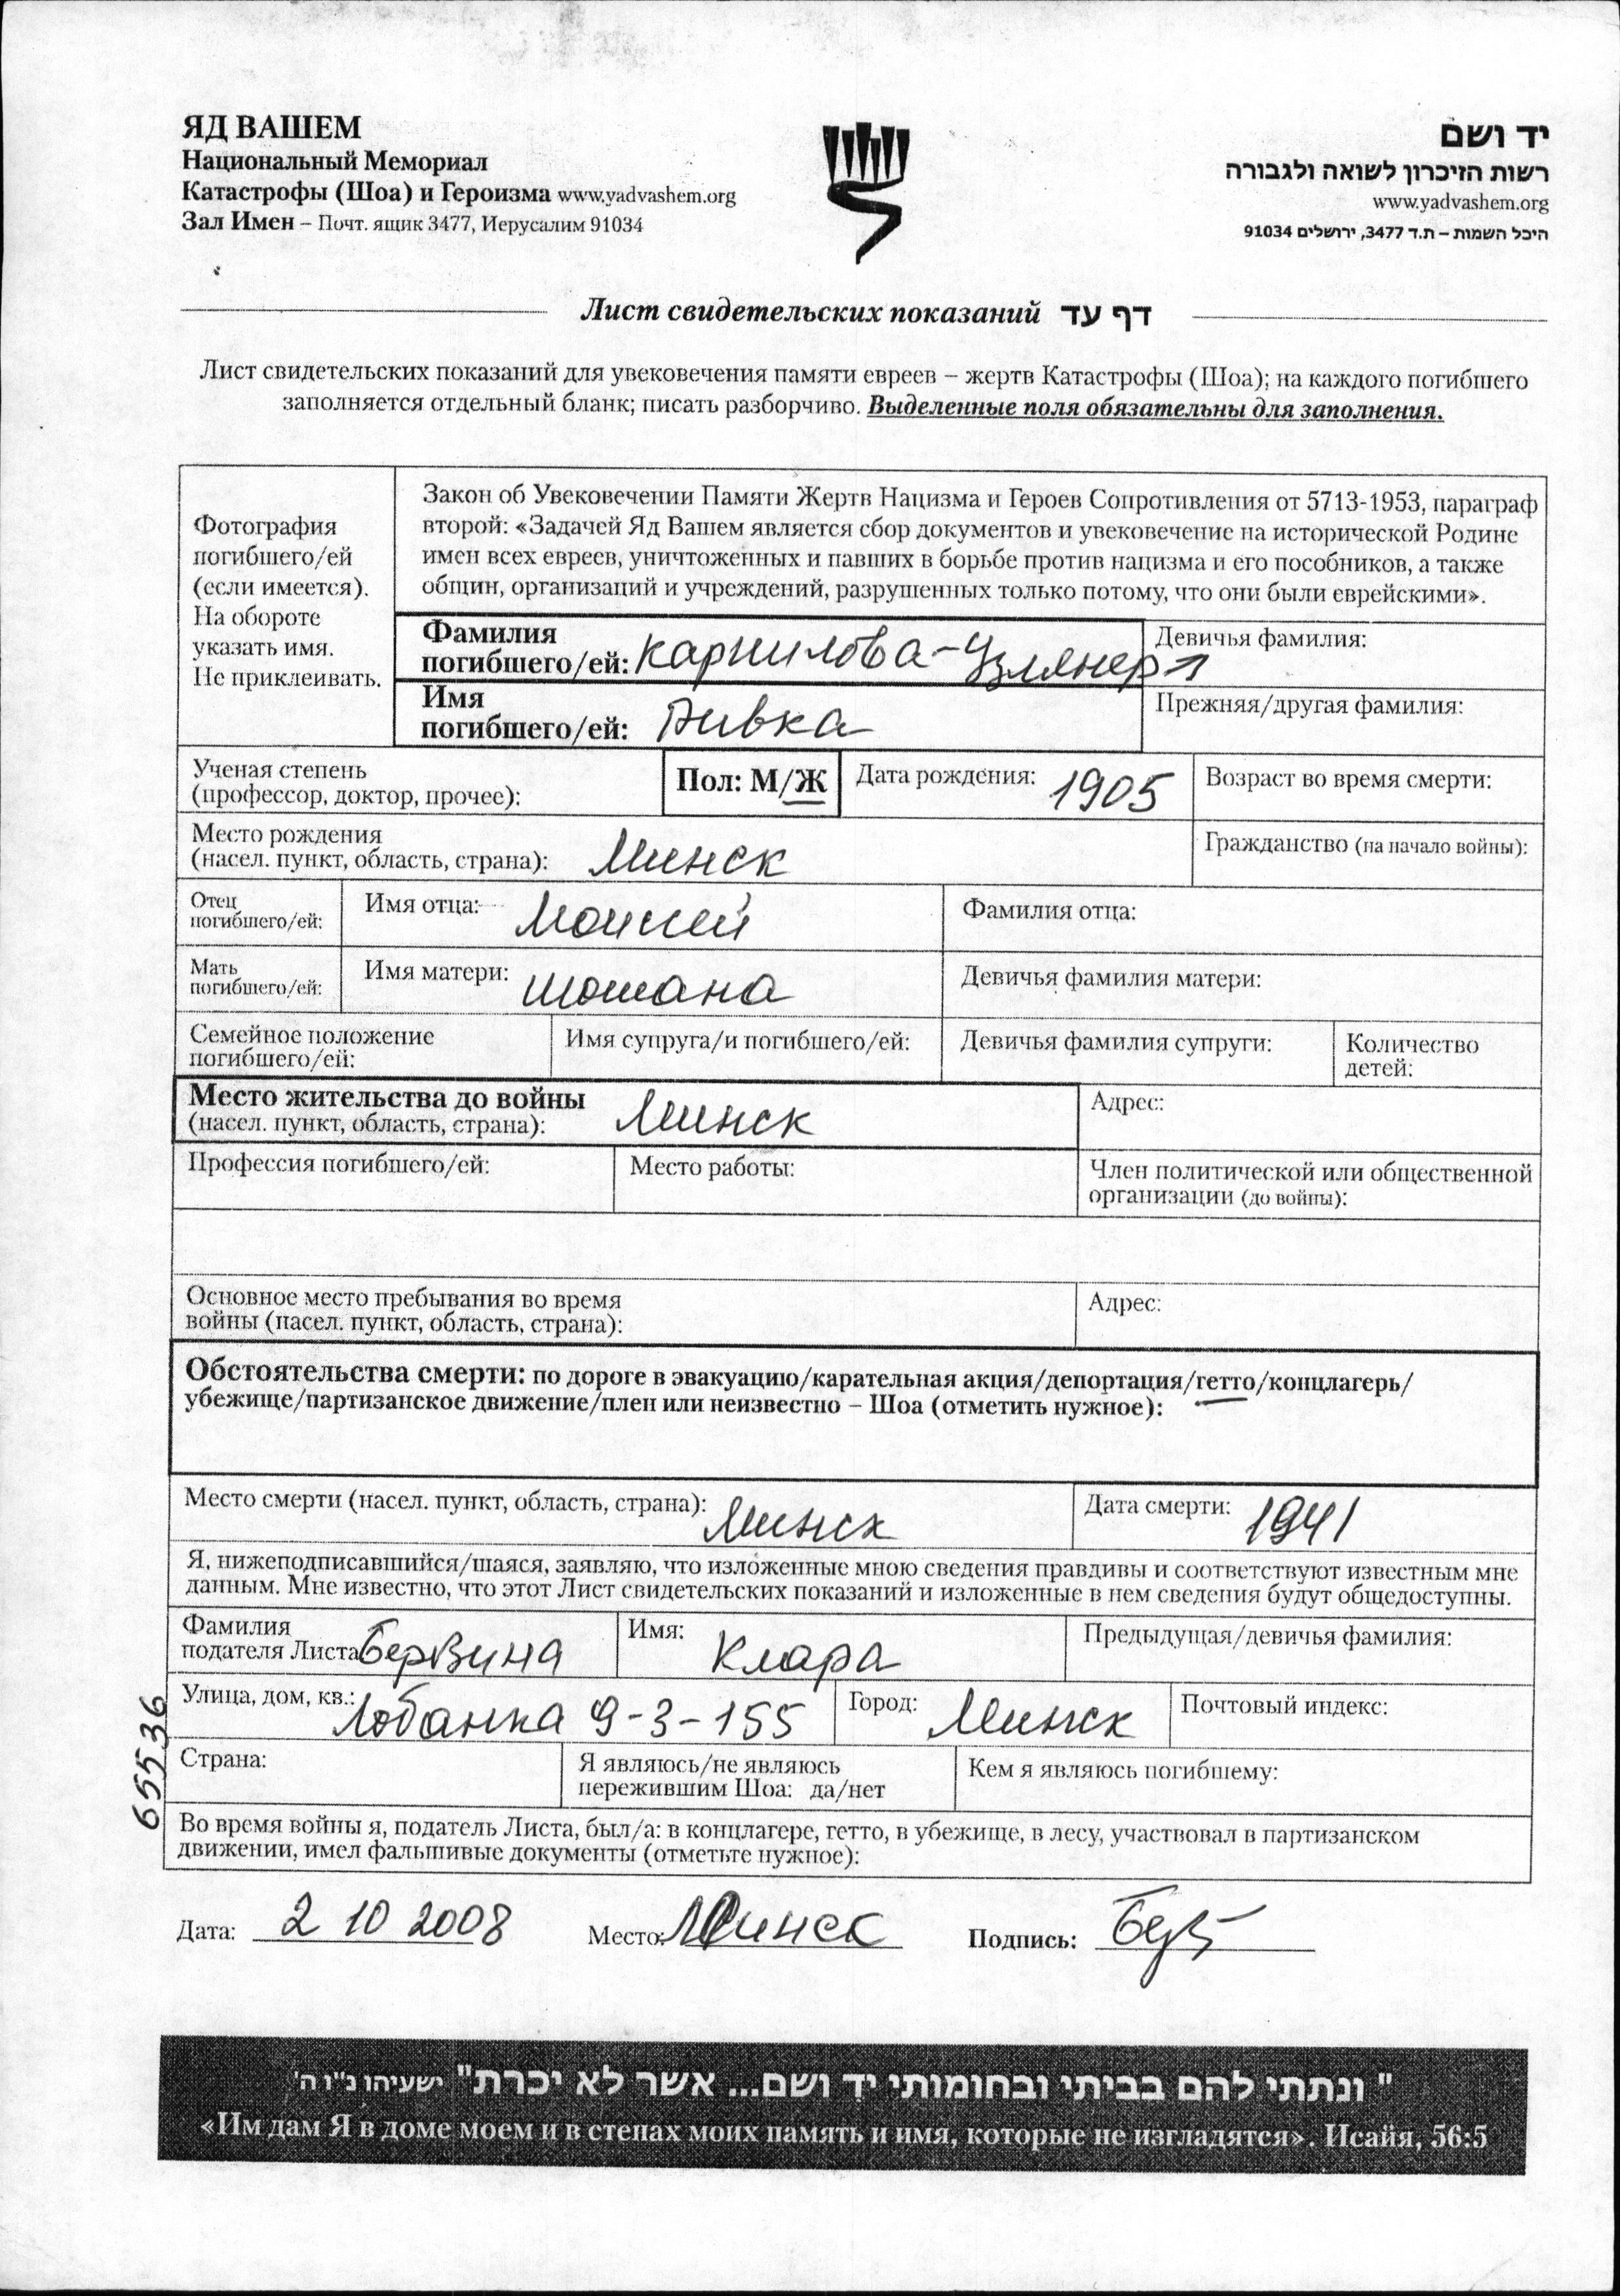 ЯД ВАШЕМ
Национальный Мемориал
Катастрофы (Шоа) и Героизма www.yadvashem.org
Зал Имен – Почт. ящик 3477, Иерусалим 91034
יד ושם
רשות הזיכרון לשואה ולגבורה
www.yadvashem.org
היכל השמות – ת.ד 3477, ירושלים 91034
Лист свидетельских показаний דף עד
Лист свидетельских показаний для увековечения памяти евреев – жертв Катастрофы (Шоа); на каждого погибшего
заполняется отдельный бланк; писать разборчиво. Выделенные поля обязательны для заполнения.
Фотография
погибшего/ей
(если имеется).
На обороте
указать имя.
Не приклеивать.
Закон об Увековечении Памяти Жертв Нацизма и Героев Сопротивления от 5713-1953, параграф
второй: «Задачей Яд Вашем является сбор документов и увековечение на исторической Родине
имен всех евреев, уничтоженных и павших в борьбе против нацизма и его пособников, а также
общин, организаций и учреждений, разрушенных только потому, что они были еврейскими».
Фамилия
погибшего/ей: Карнилова-
Девичья фамилия:
Имя
погибшего/ей: Ривка
Прежняя/другая фамилия:
Ученая степень
(профессор, доктор, прочее):
Пол: М/Ж
Дата рождения: 1905
Возраст во время смерти:
Место рождения
(насел. пункт, область, страна): Минск
Гражданство (на начало войны):
Отец
погибшего/ей:
Имя отца: Моисей
Фамилия отца:
Мать
погибшего/ей:
Имя матери: Шошана
Девичья фамилия матери:
Семейное положение
погибшего/ей:
Имя супруга/и погибшего/ей:
Девичья фамилия супруги:
Количество
детей:
Место жительства до войны
(насел. пункт, область, страна): Минск
Адрес:
Профессия погибшего/ей:
Место работы:
Член политической или общественной
организации (до войны):
Основное место пребывания во время
войны (насел. пункт, область, страна):
Адрес:
Обстоятельства смерти: по дороге в эвакуацию/карательная акция/депортация/гетто/концлагерь/
убежище/партизанское движение/плен или неизвестно – Шоа (отметить нужное):
Место смерти (насел. пункт, область, страна): Минск
Дата смерти: 1941
Я, нижеподписавшийся/шаяся, заявляю, что изложенные мною сведения правдивы и соответствуют известным мне
данным. Мне известно, что этот Лист свидетельских показаний и изложенные в нем сведения будут общедоступны.
Фамилия
подателя Листа Бервина
Имя: Клара
Предыдущая/девичья фамилия:
Улица, дом, кв.: Лобанка 9-3-155
Город: Минск
Почтовый индекс:
Страна:
Я являюсь/не являюсь
пережившим Шоа: да/нет
Кем я являюсь погибшему:
65536
Во время войны я, податель Листа, был/а: в концлагере, гетто, в убежище, в лесу, участвовал в партизанском
движении, имел фальшивые документы (отметьте нужное):
Дата: 2 10 2008
Место: Минск
Подпись:
" ונתתי להם בביתי ובחומותי יד ושם... אשר לא יכרת" ישעיהו נ"ו ה'
«Им дам Я в доме моем и в стенах моих память и имя, которые не изгладятся». Исайя, 56:5